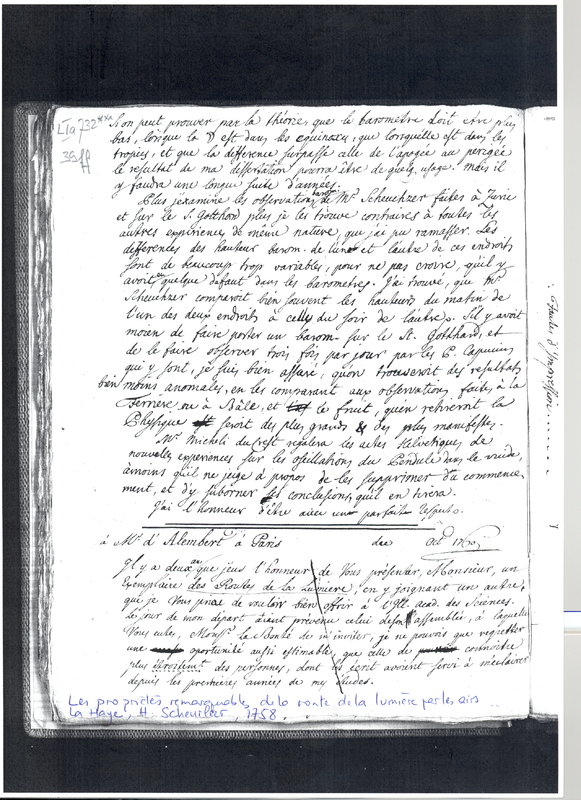 LIa 732***
38ff
Si on peut prouver par la théorie, que le barometre doit etre plus
bas, lorsque la ☽ est dans les equinoxes, que lorsqu'elle est dans les
tropics, et que la difference surpasse celle de l'apogée au perigée
le resultat de ma dissertation pourra être de quelq. usage. mais il
y faudra une longue suite d'années.
Plus j'examine les observations barom. de Mr. Scheuchzer faites à Zuric
et sur le S. Gotthard plus je les trouve contraires à toutes les
autres experiences de même nature, que j'ai pu ramasser. Les
differences des hauteurs barom. de l'un et l'autre de ces endroits
sont de beaucoup trop variables, pour ne pas croire, qu'il y
avoit eu quelque defaut dans les barometres. J'ai trouvé, que Mr.
Scheuchzer comparoit bien souvent les hauteurs du matin de
l'un des deux endroits à celles du soir de l'autre. S'il y avoit
moien de faire porter un barom. sur le St. Gotthard, et
de le faire observer trois fois par jour par les P. Capucins
qui y sont, je suis bien assuré, qu'on trouveroit des resultats
bien moins anomales, en les comparant aux observations faites à la
Ferriere ou à Bâle, et le fruit, qu'en retireroit la
Physique seroit des plus grands & des plus manifestes.
Mr. Micheli du Crest regalera les actes Helvetiques de
nouvelles experiences sur les oscillations du Pendule dans le vuide,
à moins qu'il ne juge à propos de les supprimer du commence
ment, et d'y suborner les conclusions, qu'il en tirera.
J'ai l'honneur d'être avec un parfait respect.
à Mr. d'Alembert à Paris dee Oct 1760
Il y a deux ans que j'eus l'honneur de Vous presenter, Monsieur, un
Exemplaire des Routes de la Lumiere, en y joignant un autre,
que je Vous priai de vouloir bien offrir à l'Ill. acad. des Sciences.
Le jour de mon depart aiant prevenu celui de son assemblée, à laquelle
Vous eutes, Monsr. la Bonté de m'inviter, je ne pouvois que regretter
une oportunité aussi estimable, que celle de connoitre
plus étroitemt. des personnes, dont les écrits avoient servi à m'eclairer
depuis les premieres années de mes études.
Les propriétés remarquables de la route de la lumière par les airs
La Haye, H. Scheurleer, 1758.
Fautes d'Impression